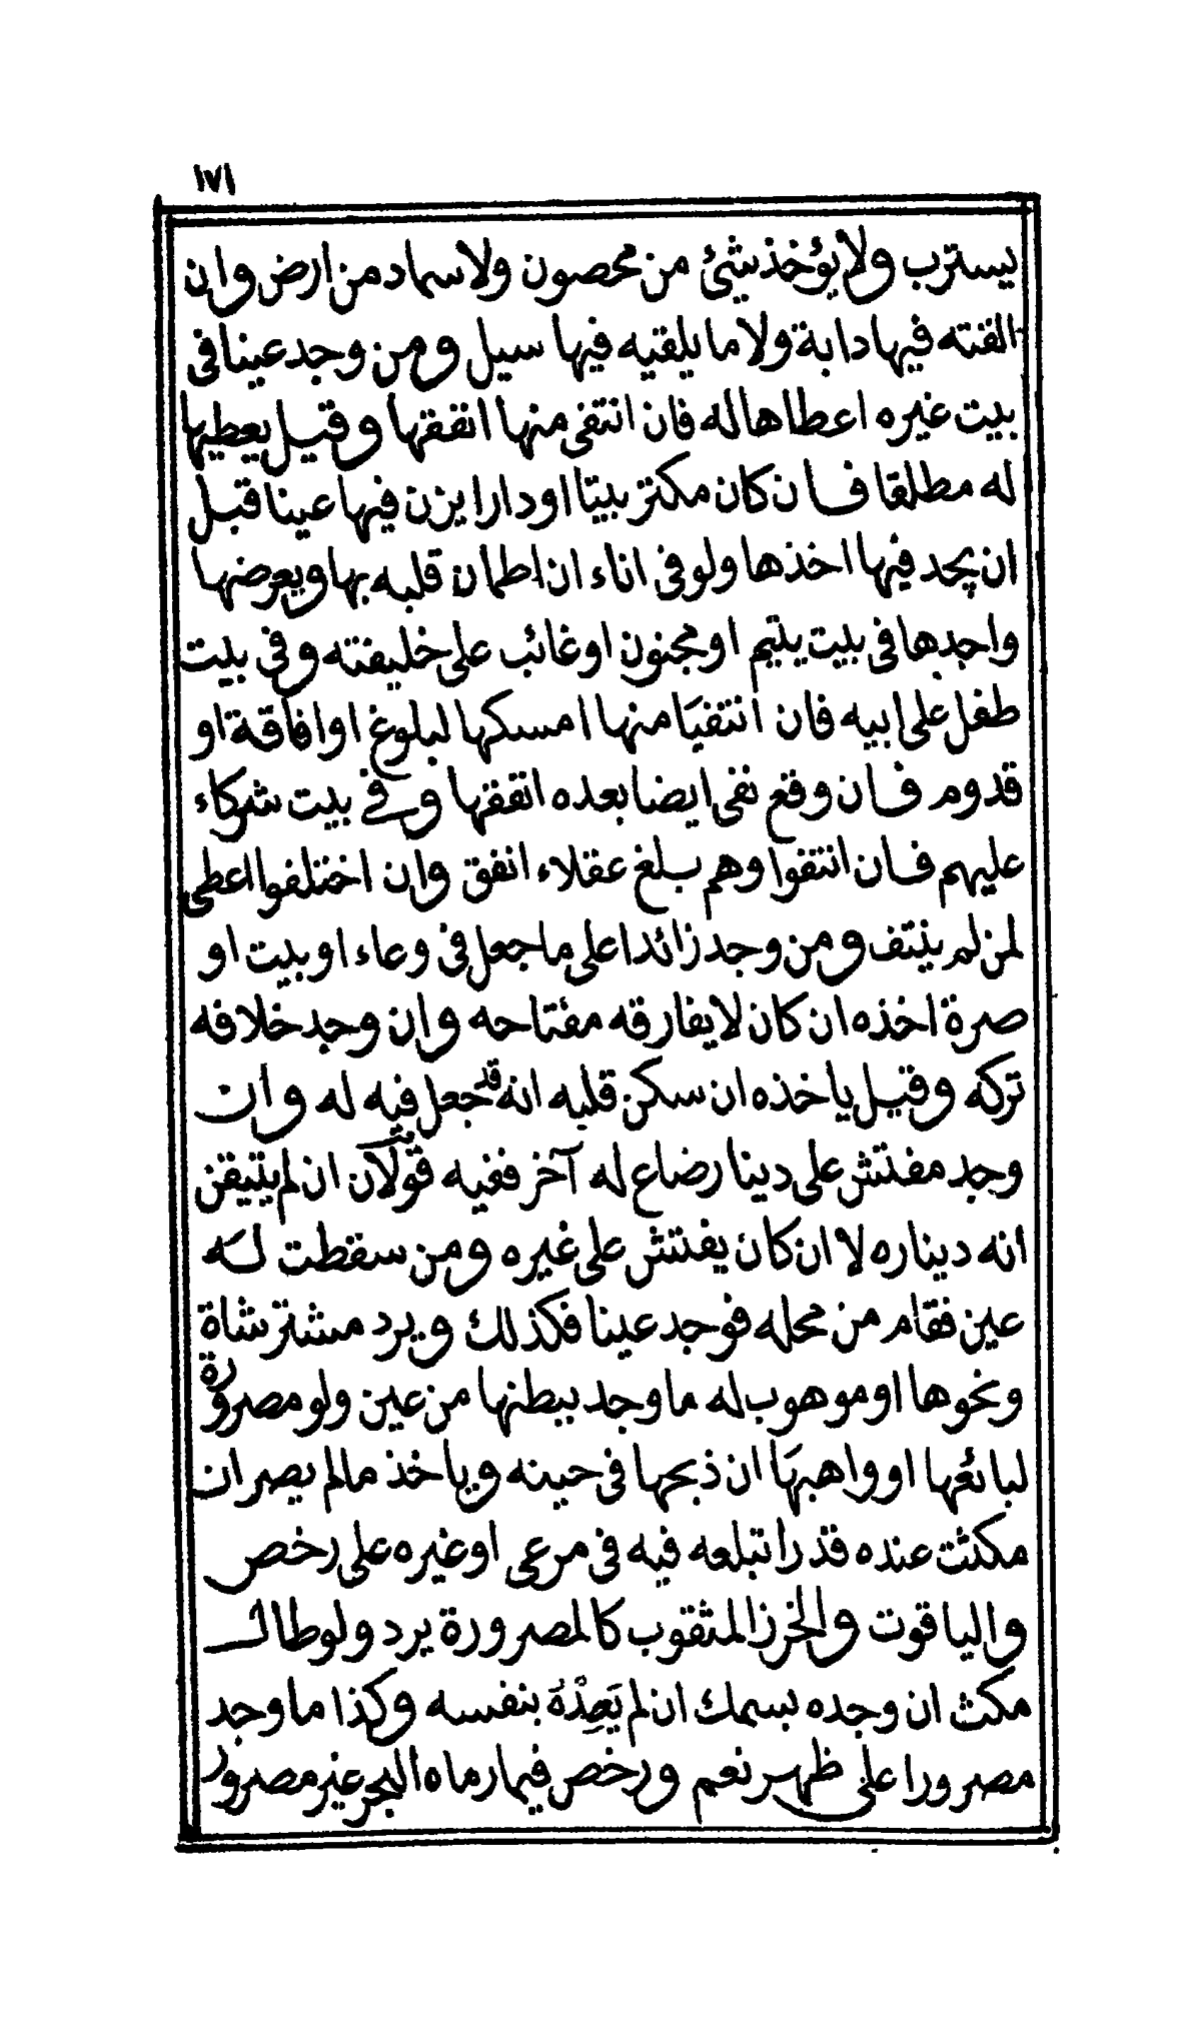 ١٧١
يسترب ولا يؤخذ شيئ من محصون ولا سماد من ارض وان
القته فيها دابة ولا ما يلقيه فيها سيل ومن وجد عينا فى
بيت غيره اعطاها له فان انتفى منها انفقها وقيل يعطيها
له مطلقا فان كان مكتر بيتا او دارا يزن فيها عينا قبل
ان يجد فيها اخذها ولو فى اناء ان اطمان قلبه بها ويعرضها
واجدها فى بيت يتيم او مجنون او غائب على خليفته وفى بيت
طفل على ابيه فان انتفيا منها امسكها لبلوغ او افاقة او
قدوم فان وقع نفى ايضا بعده انفقها وفى بيت شركاء
عليهم فان انتفوا وهم بلغ عقلاء انفق وان اختلفوا اعطى
لمن لم ينتف ومن وجد زائدا على ما جعل فى وعاء او بيت او
صرة اخذه ان كان لا يفارقه مفتاحه وان وجد خلافه
تركه وقيل ياخذه ان سكن قلبه انه قد جعل فيه له وان
وجد مفتش على دينار ضاع له آخر ففيه قولان ان لم يتيقن
انه ديناره لا ان كان يفتش على غيره ومن سقطت له
عين فقام من محله فوجد عينا فكذلك ويرد مشتر شاة
ونحوها او موهوب له ما وجد ببطنها من عين ولو مصرورة
لبائعها او واهبها ان ذبحها فى حينه وياخذ مالم يصر ان
مكثت عنده قدر ا تبلعه فيه فى مرعى او غيره على رخص
والياقوت والخرز المثقوب كالمصرورة يرد ولو طال
مكث ان وجده بسمك ان لم يَعِدْهُ بنفسه وكذا ما وجد
مصرورا على ظهر نعم ورخص فيما رماه البحر غير مصرور